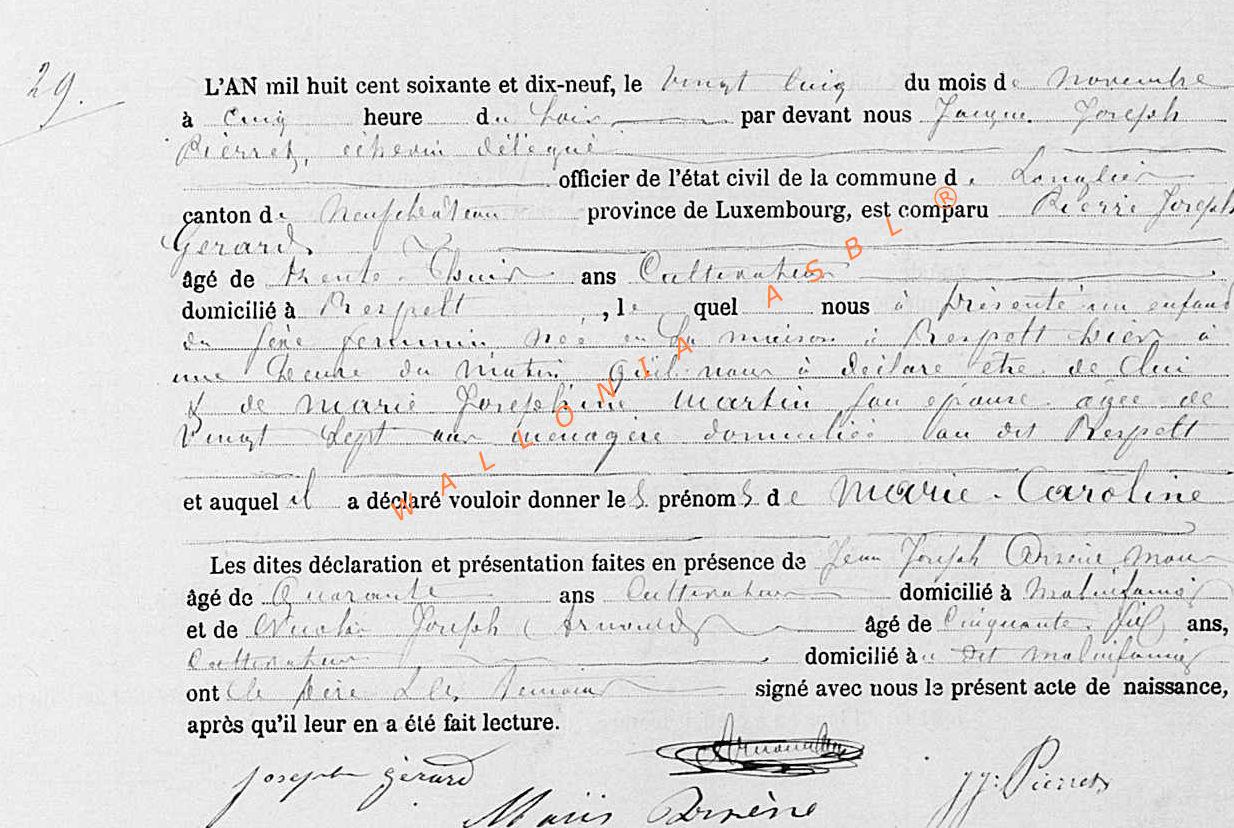 29.
L'AN mil huit cent soixante et dix-neuf, le vingt cinq du mois de novembre
à cinq heure du Soir par devant nous Jacques Joseph
Pierret, échevin délégué
officier de l'état civil de la commune de Longlier
canton de Neufchâteau province de Luxembourg, est comparu Pierre Joseph
Gerard
âgé de trente-huit ans Cultivateur
domicilié à Respelt, lequel nous à présenté un enfant
du sexe feminin, née en sa maison à Respelt hier à
une heure du matin qu'il nous à déclaré être de lui
& de marie Josephine martin son épouse agée de
vingt sept ans menagère domiciliée au dit Respelt
et auquel il a déclaré vouloir donner les prénoms de Marie-Caroline
Les dites déclaration et présentation faites en présence de Jean Joseph
âgé de Quarante ans Cultivateur domicilié à malvifaing
et de Nicolas Joseph Arnould âgé de Cinquante-six ans,
Cultivateur domicilié au dit malvifaing
ont le père & les temoins signé avec nous le présent acte de naissance,
après qu'il leur en a été fait lecture.
Arnould
Joseph gérard
J J. Pierret
Arsène
WALLONIA ASBL ®